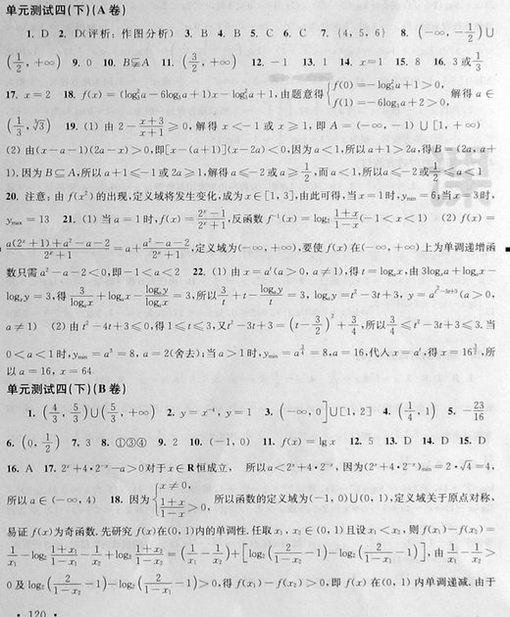 单元测试四(下)(A 卷)
1. D 2. D(评析：作图分析) 3. B 4. B 5. C 6. C 7. {4, 5, 6} 8. (-∞, -1/2)∪
(1/2, +∞) 9. 0 10. B⫋A 11. (3/2, +∞) 12. -1 13. 1 14. x=1 15. 8 16. 3 或 1/3
17. x=2 18. f(x)=(log₃²a-6log₃a+1)x-log₃²a+1, 由题意得 {f(0)=-log₃²a+1>0, f(1)=-6log₃a+2>0, 解得 a∈
(1/3, ∛3) 19. (1) 由 2-(x+3)/(x+1)≥0, 解得 x<-1 或 x≥1, 即 A=(-∞, -1)∪[1, +∞)
(2) 由(x-a-1)(2a-x)>0, 即[x-(a+1)](x-2a)<0, 因为 a<1, 所以 a+1>2a, 得 B=(2a, a+
1). 因为 B⊆A, 所以 a+1≤-1 或 2a≥1, 解得 a≤-2 或 a≥1/2, 而 a<1, 所以 a≤-2 或 1/2≤a<1
20. 注意：由 f(x²) 的出现, 定义域将发生变化, 成为 x∈[1, 3], 由此可得, 当 x=1 时, yₘᵢₙ=6; 当 x=3 时,
yₘₐₓ=13 21. (1) 当 a=1 时, f(x)=(2ˣ-1)/(2ˣ+1), 反函数 f⁻¹(x)=log₂(1+x)/(1-x)(-1<x<1) (2) f(x)=
(a(2ˣ+1)+a²-a-2)/(2ˣ+1)=a+(a²-a-2)/(2ˣ+1), 定义域为(-∞, +∞), 要使 f(x) 在(-∞, +∞) 上为单调递增函
数只需 a²-a-2<0, 即-1<a<2 22. (1) 由 x=aᵗ(a>0, a≠1), 得 t=logₐx, 由 3logₓa+logₐx-
logₓy=3, 得 3/logₐx+logₐx-logₐy/logₐx=3, 所以 3/t+t-logₐy/t=3, logₐy=t²-3t+3, y=a^(t²-3t+3)(a>0,
a≠1) (2) 由 t²-4t+3≤0, 得 1≤t≤3, 又 t²-3t+3=(t-3/2)²+3/4, 所以 3/4≤t²-3t+3≤3. 当
0<a<1 时, yₘᵢₙ=a³=8, a=2(舍去); 当 a>1 时, yₘᵢₙ=a^(3/4)=8, a=16, 代入 x=aᵗ, 得 x=16^(3/2), 所
以 a=16, x=64
单元测试四(下)(B 卷)
1. (4/3, 5/3)∪(5/3, +∞) 2. y=x⁻⁴, y=1 3. (-∞, 0]∪[1, 2] 4. (1/4, 1) 5. -23/16
6. (0, 1/2) 7. 3 8. ①③④ 9. 2 10. (-1, 0) 11. f(x)=lg x 12. 5 13. D 14. D 15. D
16. A 17. 2ˣ+4·2⁻ˣ-a>0 对于 x∈R 恒成立, 所以 a<2ˣ+4·2⁻ˣ, 因为(2ˣ+4·2⁻ˣ)ₘᵢₙ=2·√4=4,
所以 a∈(-∞, 4) 18. 因为 {x≠0, (1+x)/(1-x)>0, 所以函数的定义域为(-1, 0)∪(0, 1), 定义域关于原点对称,
易证 f(x)为奇函数. 先研究 f(x)在(0, 1)内的单调性. 任取 x₁, x₂∈(0, 1)且设 x₁<x₂, 则 f(x₁)-f(x₂)=
1/x₁-log₂(1+x₁)/(1-x₁)-1/x₂+log₂(1+x₂)/(1-x₂)=(1/x₁-1/x₂)+[log₂(2/(1-x₂)-1)-log₂(2/(1-x₁)-1)], 由 1/x₁-1/x₂>
0 及 log₂(2/(1-x₂)-1)-log₂(2/(1-x₁)-1)>0, 得 f(x₁)-f(x₂)>0, 即 f(x) 在(0, 1) 内单调递减. 由于
· 120 ·